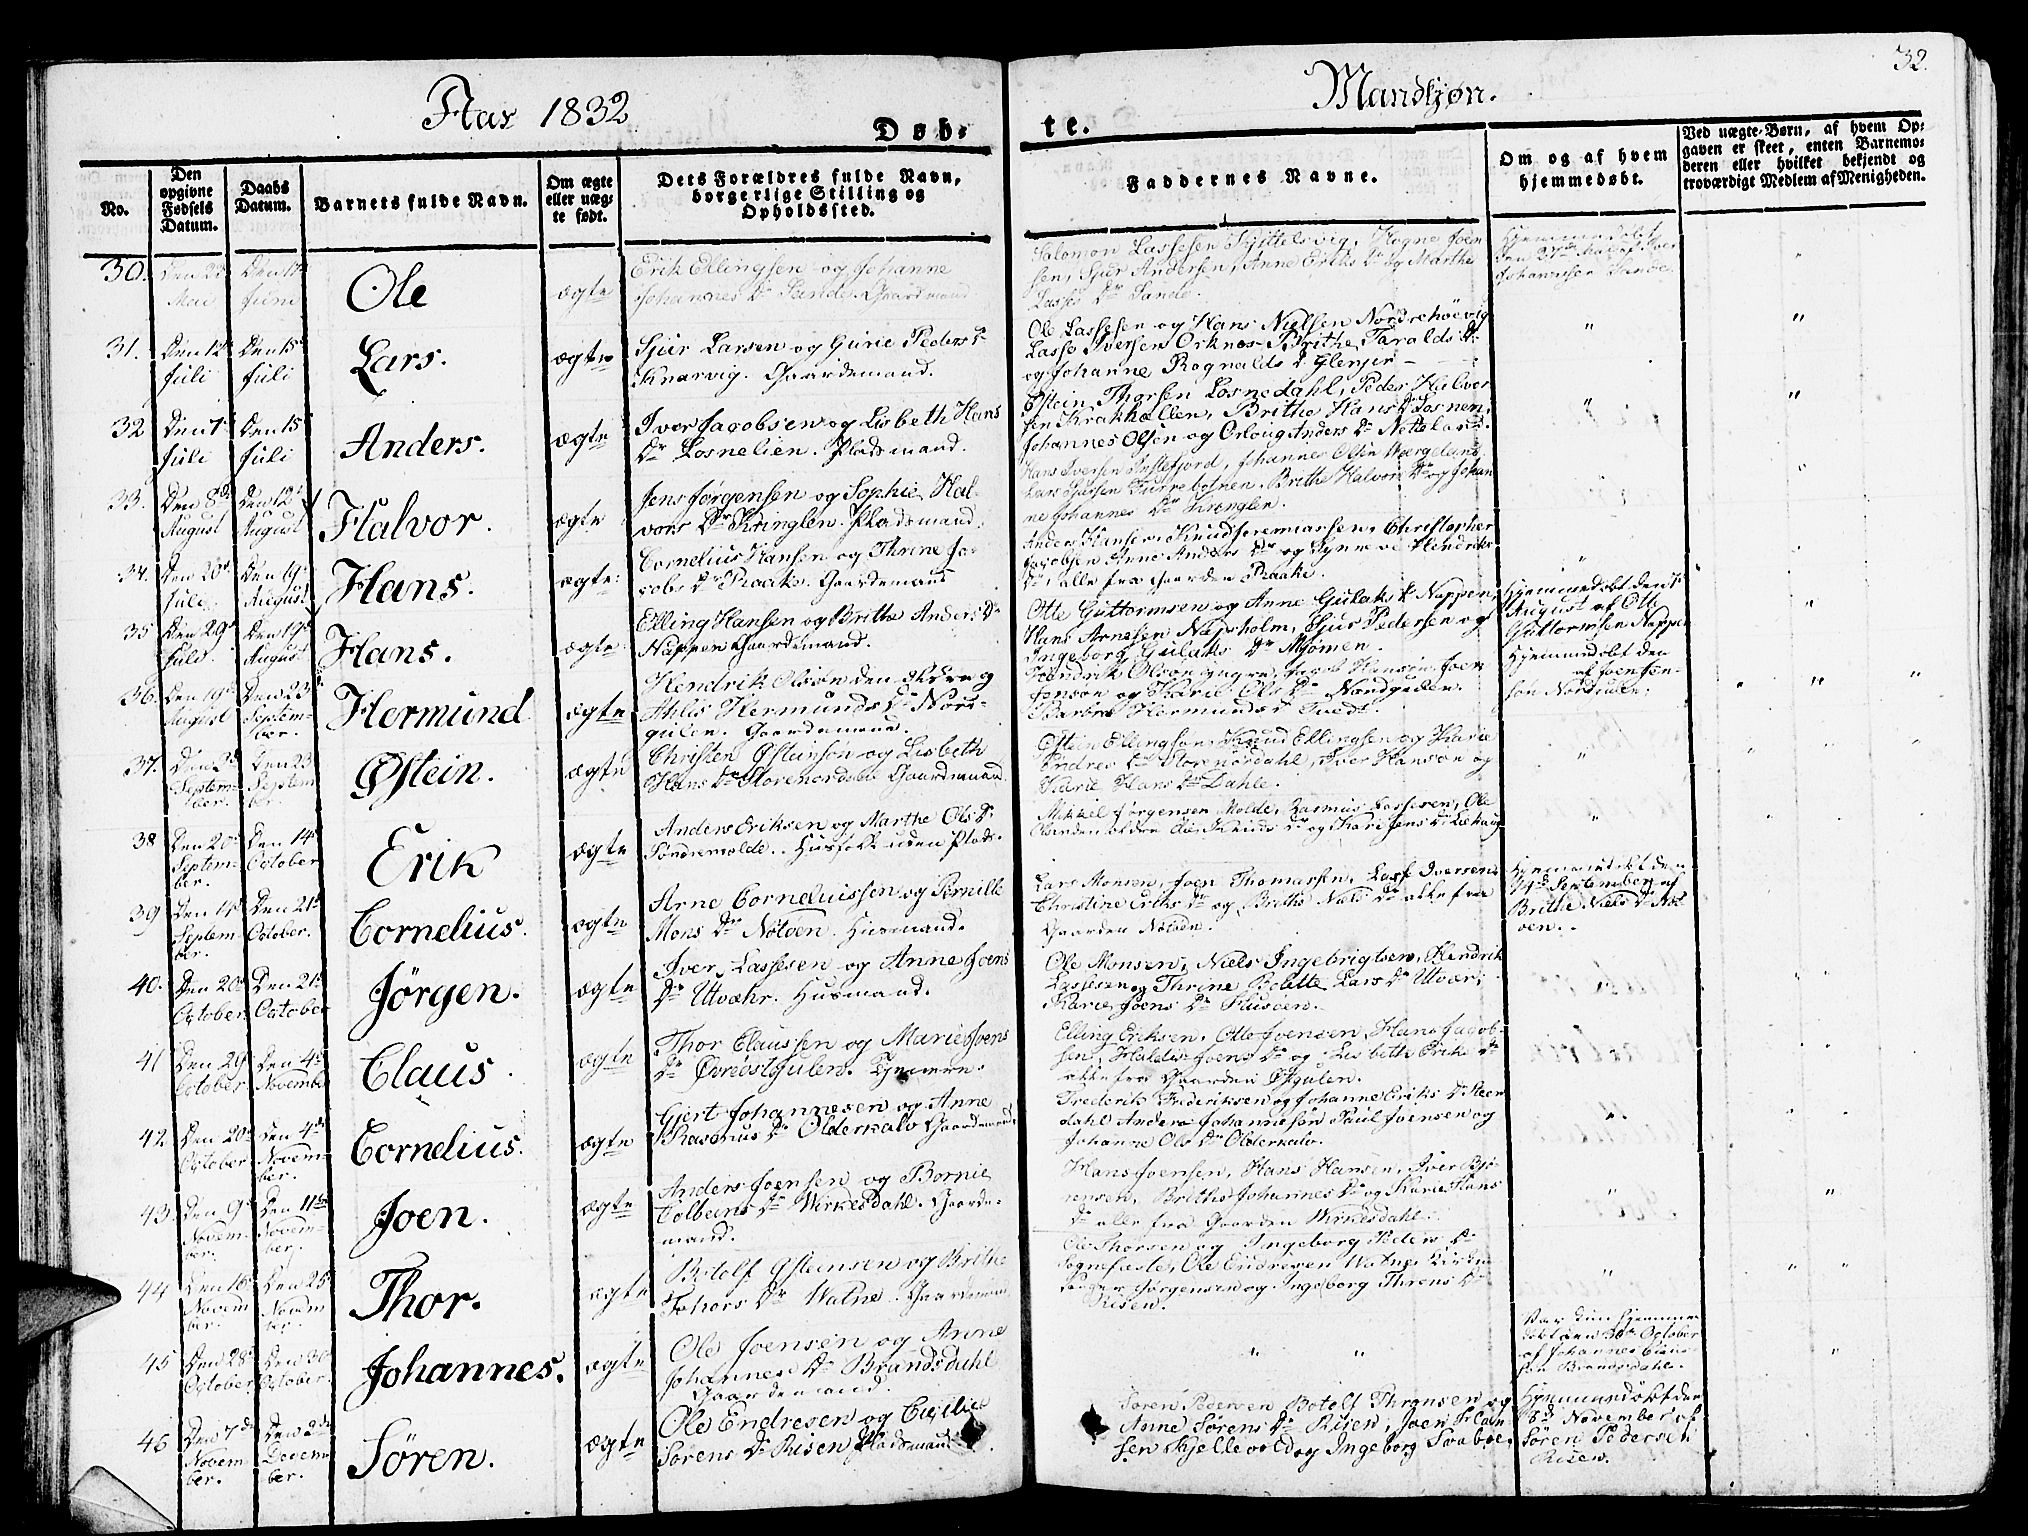 32.
Aar 1832
Mandkjøn.
Døb-
te.
No.
Den opgivne Fødsels Datum.
Daabs Datum.
Barnets fulde Navn.
Om ægte eller uægte født.
Dets Forældres fulde Navn, borgerlige Stilling og Opholdssted.
Faddernes Navne.
Om og af hvem hjemmedøbt.
Ved uægte Børn, af hvem Opgaven er skeet, enten Barnemoderen eller hvilket bekjendt og troværdigt Medlem af Menigheden.
30.
Mai
Juni
Ole
ægte
Erik Ellingsen og Johanne
Johannes Dr Sande. Gaardmand
Salomon Lassesen
sen, Sjur Andersen, Anne Eriks Dr og Marthe
Lasses Dr Sande.
31.
Den 12te
Juli
Den 15
Juli
Lars.
ægte
Sjur Larsen og Gurie Peders Dr
Knarvig. Gaardemand.
Ole Lassesen og Hans Nielsen Nordrehöevig
Lasse Iversen Orknes Brithe Taralds Dr
og Johanne Rognalds Dr Glenjer
32
Den 7
Juli
Den 15
Juli
Anders.
ægte
Iver Jacobsen og Lisbeth Hans
Dr Losnelien. Pladsmand.
Østein Thorsen Losnedahl, Peder Halvor
sen Krakhellen, Brithe Hans Dr Losnen,
Johannes Olsen og Orloug Anders Dr
33.
Den 8de
August
Den 12
August
Halvor.
ægte
Jens Jørgensen og Sophie Hal-
vors Dr Kringlen. Pladsmand.
Hans Iversen Instefjord, Johannes Olsen
Brithe Halvors Dr og Johan
ne Johannes Dr Kringlen.
34.
Den 20
Juli
Den 19
August
Hans.
ægte
Cornelius Hansen og Thrine Ja-
cobs Dr Braake. Gaardemand
Anders Hansen, Christopher
Jacobsen Anne Anders Dr og Hendriks
Dr, alle fra Gaarden Braake.
35
Den 29
Juli.
Den 19
August
Hans.
ægte
Elling Hansen og Brithe Anders Dr
Nappen Gaardemand.
Otte Guttormsen og Anne Gulaks Dr Nappen,
Hans Arnesen Sjur Pedersen og
Ingeborg Gulaks Dr Mjömen.
Hjemmedøbt den
August af Otte
Guttormsen Nappen
36.
Den 19
August
Den 23
Septem-
ber.
Hermund
ægte
Hendrik Olsön den
Athlis Hermunds Dr Nord-
gulen. Gaardemand.
Hendrik Olsön yngre, Jacob Hansen, Joen
Jenson og Karie Ols Dr
Barbra Hermunds Dr
Hjemmedøbt den
af Joen Jen-
sön Nordgulen.
37.
Septem-
ber.
Den 23
Septem
ber.
Østein.
ægte
Christen Östensön og Lisbeth
Hans Dr Storenordale Gaardemand.
Östein Ellingsön, Knud Ellingsen og Karie
Endres Dr Storenordahl, Iver Hanson og
Karie Hans Dr Dahle.
38
Den 20
Septem-
ber.
Den 14
October
Erik
ægte
Anders Eriksen og Marthe Ols Dr
Söndremolde. Husfolk uden Plads.
Mikkel Jörgensen Molde, Rasmus Lassesen, Ole
39
Septem
ber.
Den 21
October.
Cornelius.
ægte
Arne Corneliussen og Pernille
Mons Dr Nötöen. Husmand.
Lars Monsen, Joen Thomassen, Iversen,
Christine Eriks Dr og Brithe Niels Dr alle fra
Gaarden Nötöen.
Hjemmedöbt den
September af
Brithe Niels Dr Nöt
öen.
40.
Den 20
October
Den 21
October
Jørgen.
ægte
Iver Lassesen og Anne Joens
Dr Utvæhr. Husmand.
Ole Monsen, Niels Ingebrigtsen, Hendrik
Lassesen og Thrine Bolette Lars Dr Utvær;
Karie Joens Dr Husöen.
41
Den 29
October
Den 4
November
Claus
ægte
Thor Claussen og Marie Joens
Dr Övreöstgulen. Tjenere.
Elling Eriksen, Otte Joensen, Hans Jacob-
sen, Joens Dr og Lisbeth Eriks Dr
alle fra Gaarden Östgulen.
42.
Den 20
October
Den 4de
Novem-
ber.
Cornelius.
ægte
Gjert Johannesen og Anne
Rasmus Dr Olderkalv Gaardemand
Frederik Frederiksen og Johanne Eriks Dr Steen
dahl Anders Johannesön Paul Joensen og
Johanne Ols Dr Olderkalv.
43.
Den 9
Novem-
ber.
Den 11te
Novem-
ber.
Joen.
ægte
Anders Joensen og Bornie
Colbeins Dr Wirkesdahl. Gaarde-
mand.
Hans Joensen, Hans Hansen, Iver Bjö-
rensen, Brithe Johannes Dr og Karie Hans
Dr alle fra Gaarden Wirkesdahl.
44
Den 18
Novem
ber.
Den 25
Novem
ber.
Thor.
ægte
Botolf Östensen og Brithe
Dr Watne. Gaardemand
Ole Thorsen og Ingeborg Peders Dr
Sognefæste, Ole Endresen Watne
Jörgensen og Ingeborg Throns Dr
Risen.
45
Den 28
October
Den 30
October.
Johannes.
ægte
Ole Joensen og Anne
Johannes Dr Brandsdahl
Gaardemand.
Var kun hjemme
döbt den 30te October
af Johannes Claus-
sen Brandsdahl.
46
Den 7de
Novem
ber.
Den 2den
Decem
ber.
Sören.
ægte
Ole Endresen og Cecilie
Sörens Dr Risen Pladsmand
Sören Pedersen Botolf Thronsen og
Anne Sörens Dr Risen, Joen Han-
sen Skjellevold og Ingeborg Svaböe.
Hjemmedöbt den
8de November af
Sören Pedersen
Risen.